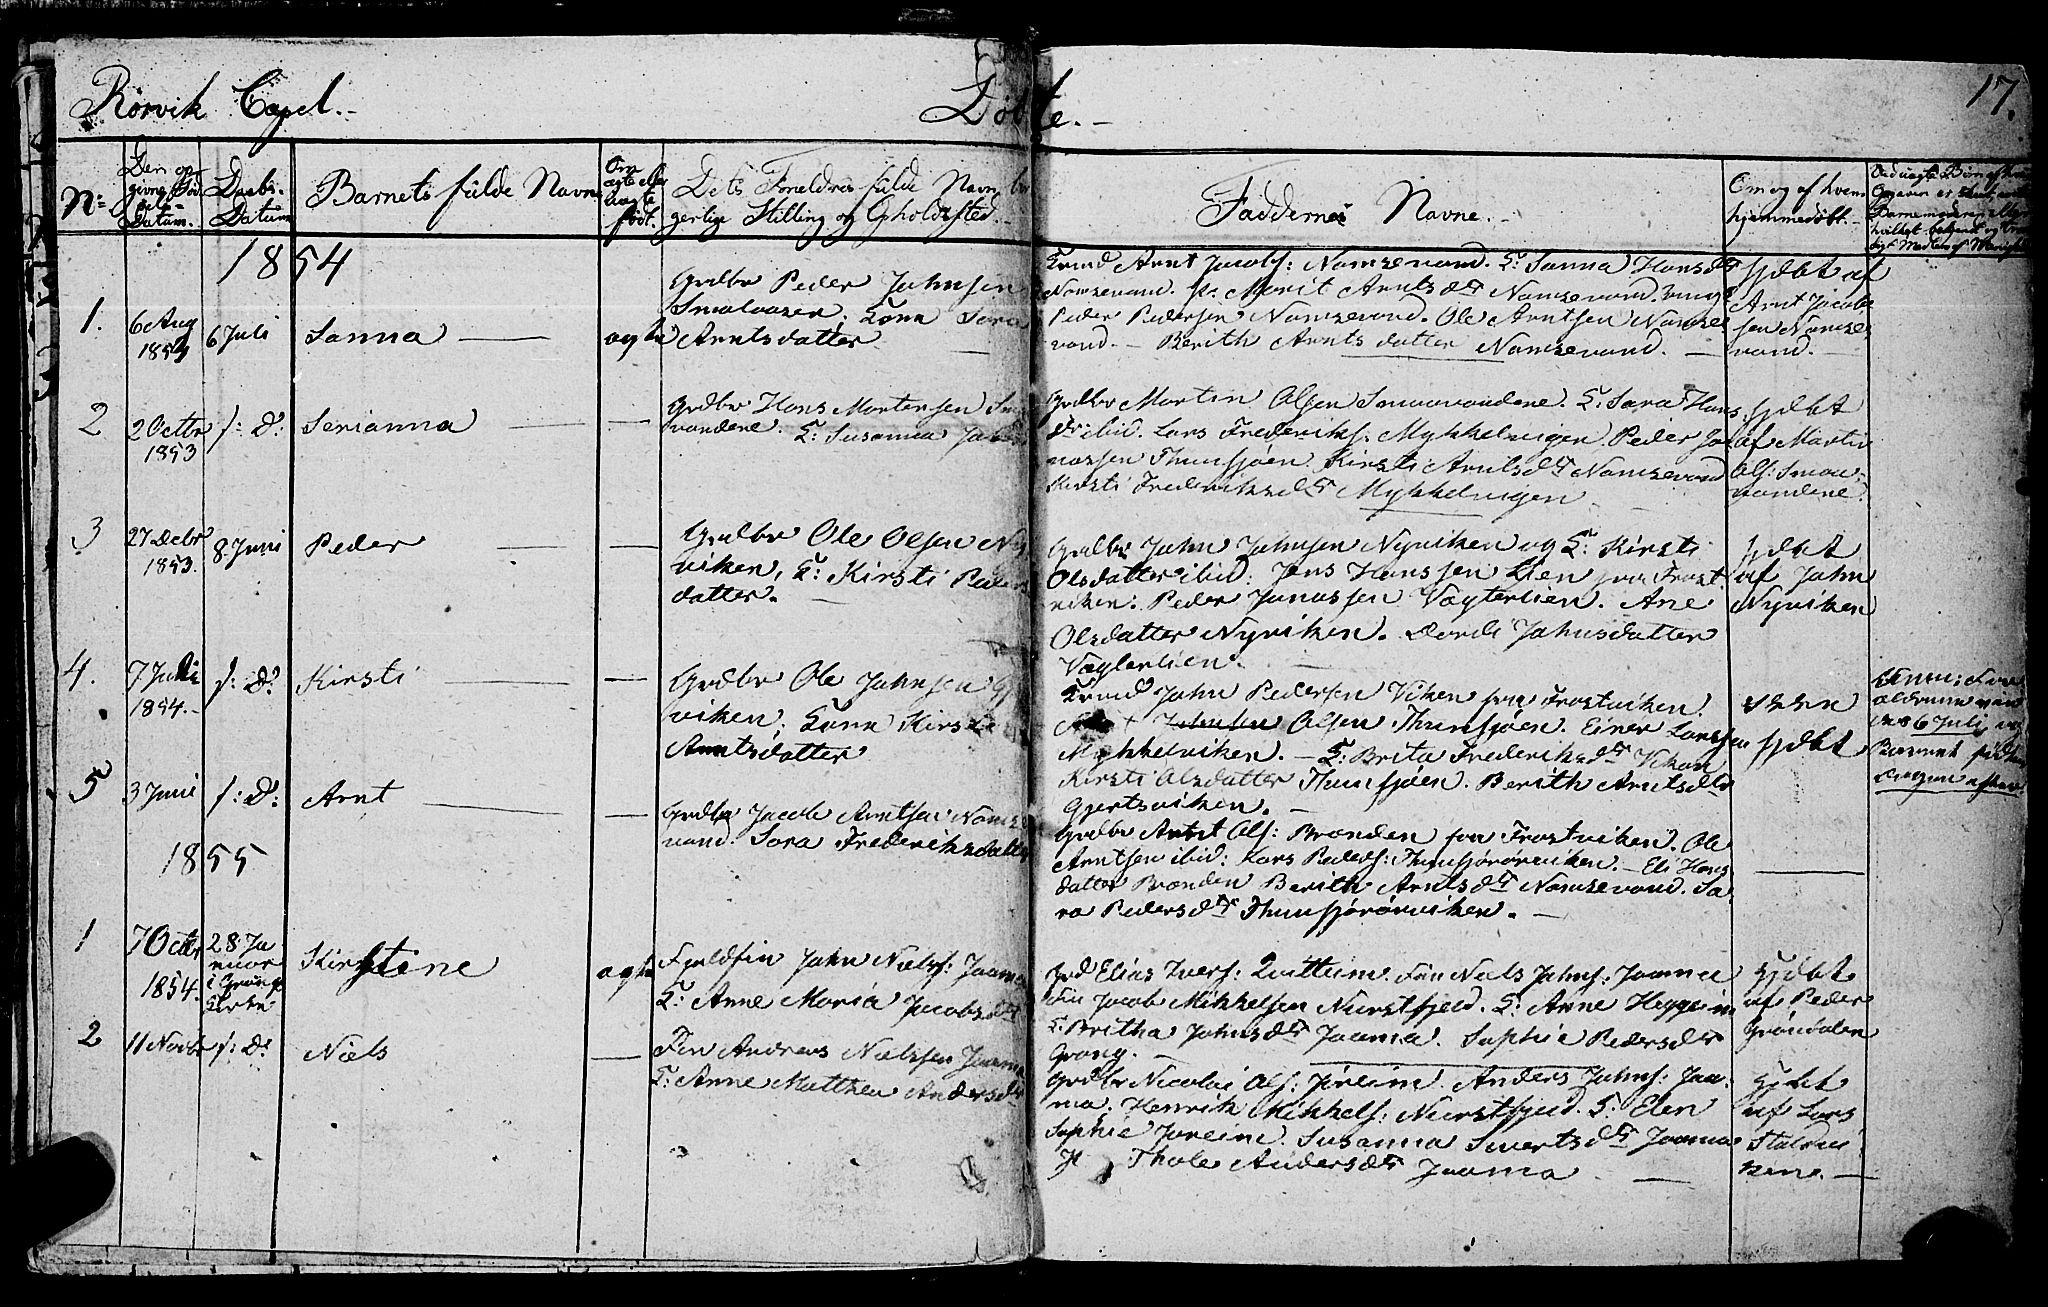 Rørvik Capel.
Døbte.
17.
No
Den op
givne Fød
sels-
Datum.
Daabs-
Datum
Barnets fulde Navn
Om
ægte eller
uægte
født.
Dets Forældres fulde Navn bor
gerlige Stilling og Opholdssted.
Faddernes Navne.
Om og af hvem
hjemmedøbt.
1854
1.
6 Aug
1854
6 Juli
Sanna
ægte
Grdbr Peder Johnsen
Smalaasen. Kone Sara
Arntsdatter
Arnt Jacobs: Namsevand. K: Sanna Hansdr
Namsevand. Marit Arntsdr Namsevand.
Peder Pedersen Namsevand. Ole Arntsen Namse
vand. Berith Arntsdatter Namsevand.
hjdbt af
Arnt Jacob
sen Namse
vand.
2
2 Octbr
1853
s: D:
Serianna
Grdbr Hans Mortensen
vandene. K: Susanna
Grdbr Martin Olsen Smaavandene. K: Sara Hans
dr ibid. Lars Frederiks: Mykkelvigen. Peder Jo
nassen Thunsjøen. Kirsti Arntsdr Namsevand
Kirsti Frederiksdr Mykkelvigen
hjdbt
af Martin
Ols: Smaa-
vandene.
3
27 Decbr
1853.
8 Juni
Peder
Grdbr Ole Olsen Ny
viken, K: Kirsti Peders
datter.
Grdbr John Johnsen Nyviken og K: Kirsti
Olsdatter ibid: Jens Hanssen Lien fra Frost
viken: Peder Jonassen Vagterlien. Ane
Olsdatter Nyviken. Dordi Johnsdatter
Vagterlien.
hjdbt
af John
Nyviken
4.
7 Juli
1854.
s: D:
Kirsti
Grdbr Ole Johnsen Gj
viken. Kone Kirsti
Arntsdatter
John Pedersen Viken fra Frostviken.
Johnsen Olsen Thunsjøen. Einer Larssen
Mykkelviken. K: Brita Frederiksdr Viken
Kirsti Olsdatter Thunsjøen. Berith Arntsdr
Gjertsviken.
hjdbt
6 Juli og
Barnet født
Dagen efter.
5
3 Juni
s: D:
Arnt
Grdbr Jacob Arntsen Namse
vand. Sara Frederiksdatter
Grdbr Arnt Ols: Brænden fra Frostviken. Ole
Arntsen ibid: Lars Peders: Thunsjørørviken. Eli Hans
datter Brænden Berith Arntsdr Namsevand. Sa-
ra Pedersdr Thunsjørørviken.
1855
1
7 Octbr
1854.
28 Ja
nuar
i Grongs
Kirke
Kirstine
ægte
Fjeldfin John Niels: Jaama
K: Anne Maria Jacobsdr
Grd Elias Ivers: Fin Niels Johns: Jaama
Fin Jacob Mikkelsen Nurstfjeld. K: Anne Heggeim
K: Britha Johnsdr Jaama. Sophie Pedersdr
Grong.
Hjdbt
af Peder
Grøndalen
2
11 Novbr
s: D:
Niels
Fin Andreas Nielssen Jaama
K: Anne Matthea Andersdr
Grdbr Nicolai Ols: Joreim. Anders Johns: Jaa-
ma. Henrik Mikkels: Nurstfjeld. K: Elen
Sophie Joreim. Susanna Sivertsdr Jaama
Thole Andersdr Jaama
Hjdbt
af Lars